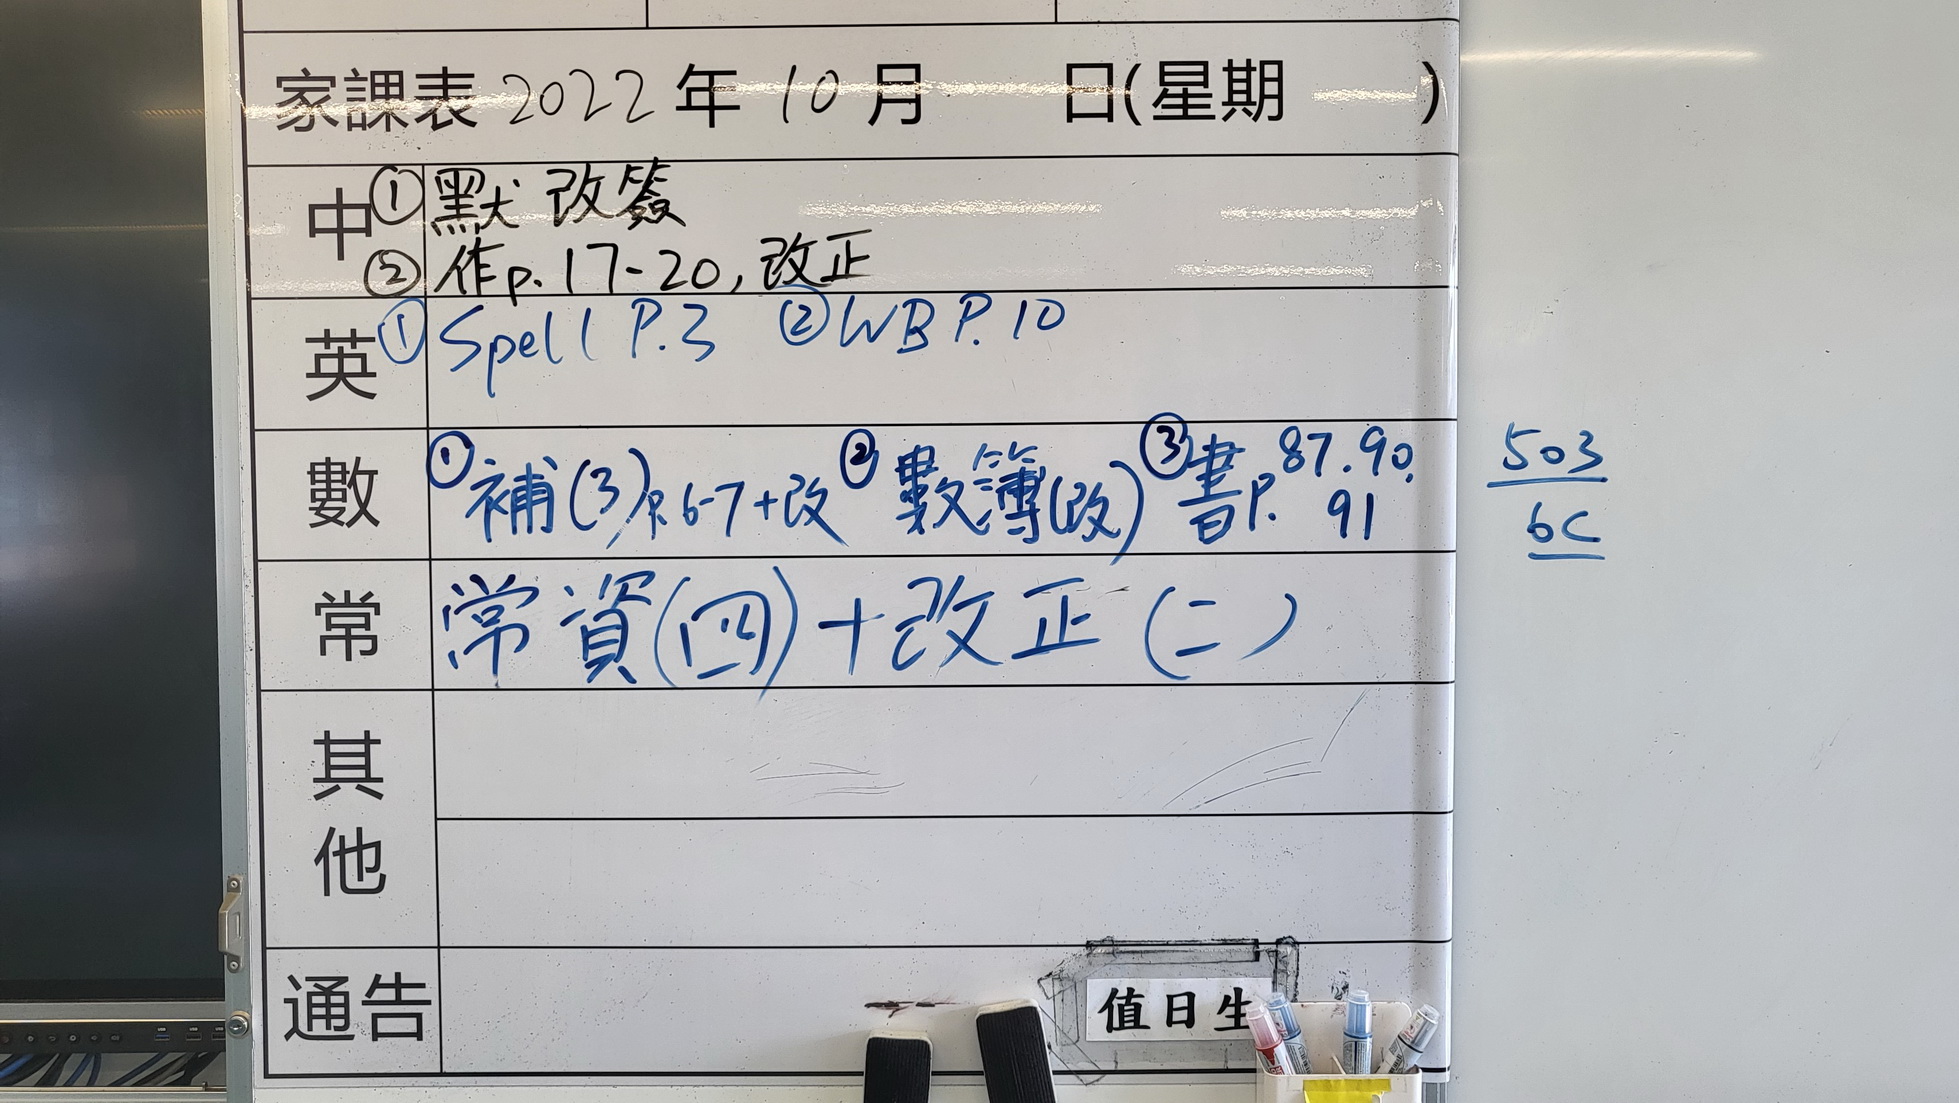 家課表 2022 年 10 月 日(星期 )
中 ① 默 改簽
② 作p.17-20, 改正
英 ① Spell P.3 ② WB P.10
數 ① 補(3)P.6-7+改 ② 數簿(改) ③ 書P. 87.90,
91
503
6C
常 常資(四)+改正(二)
其
他
通告
值日生